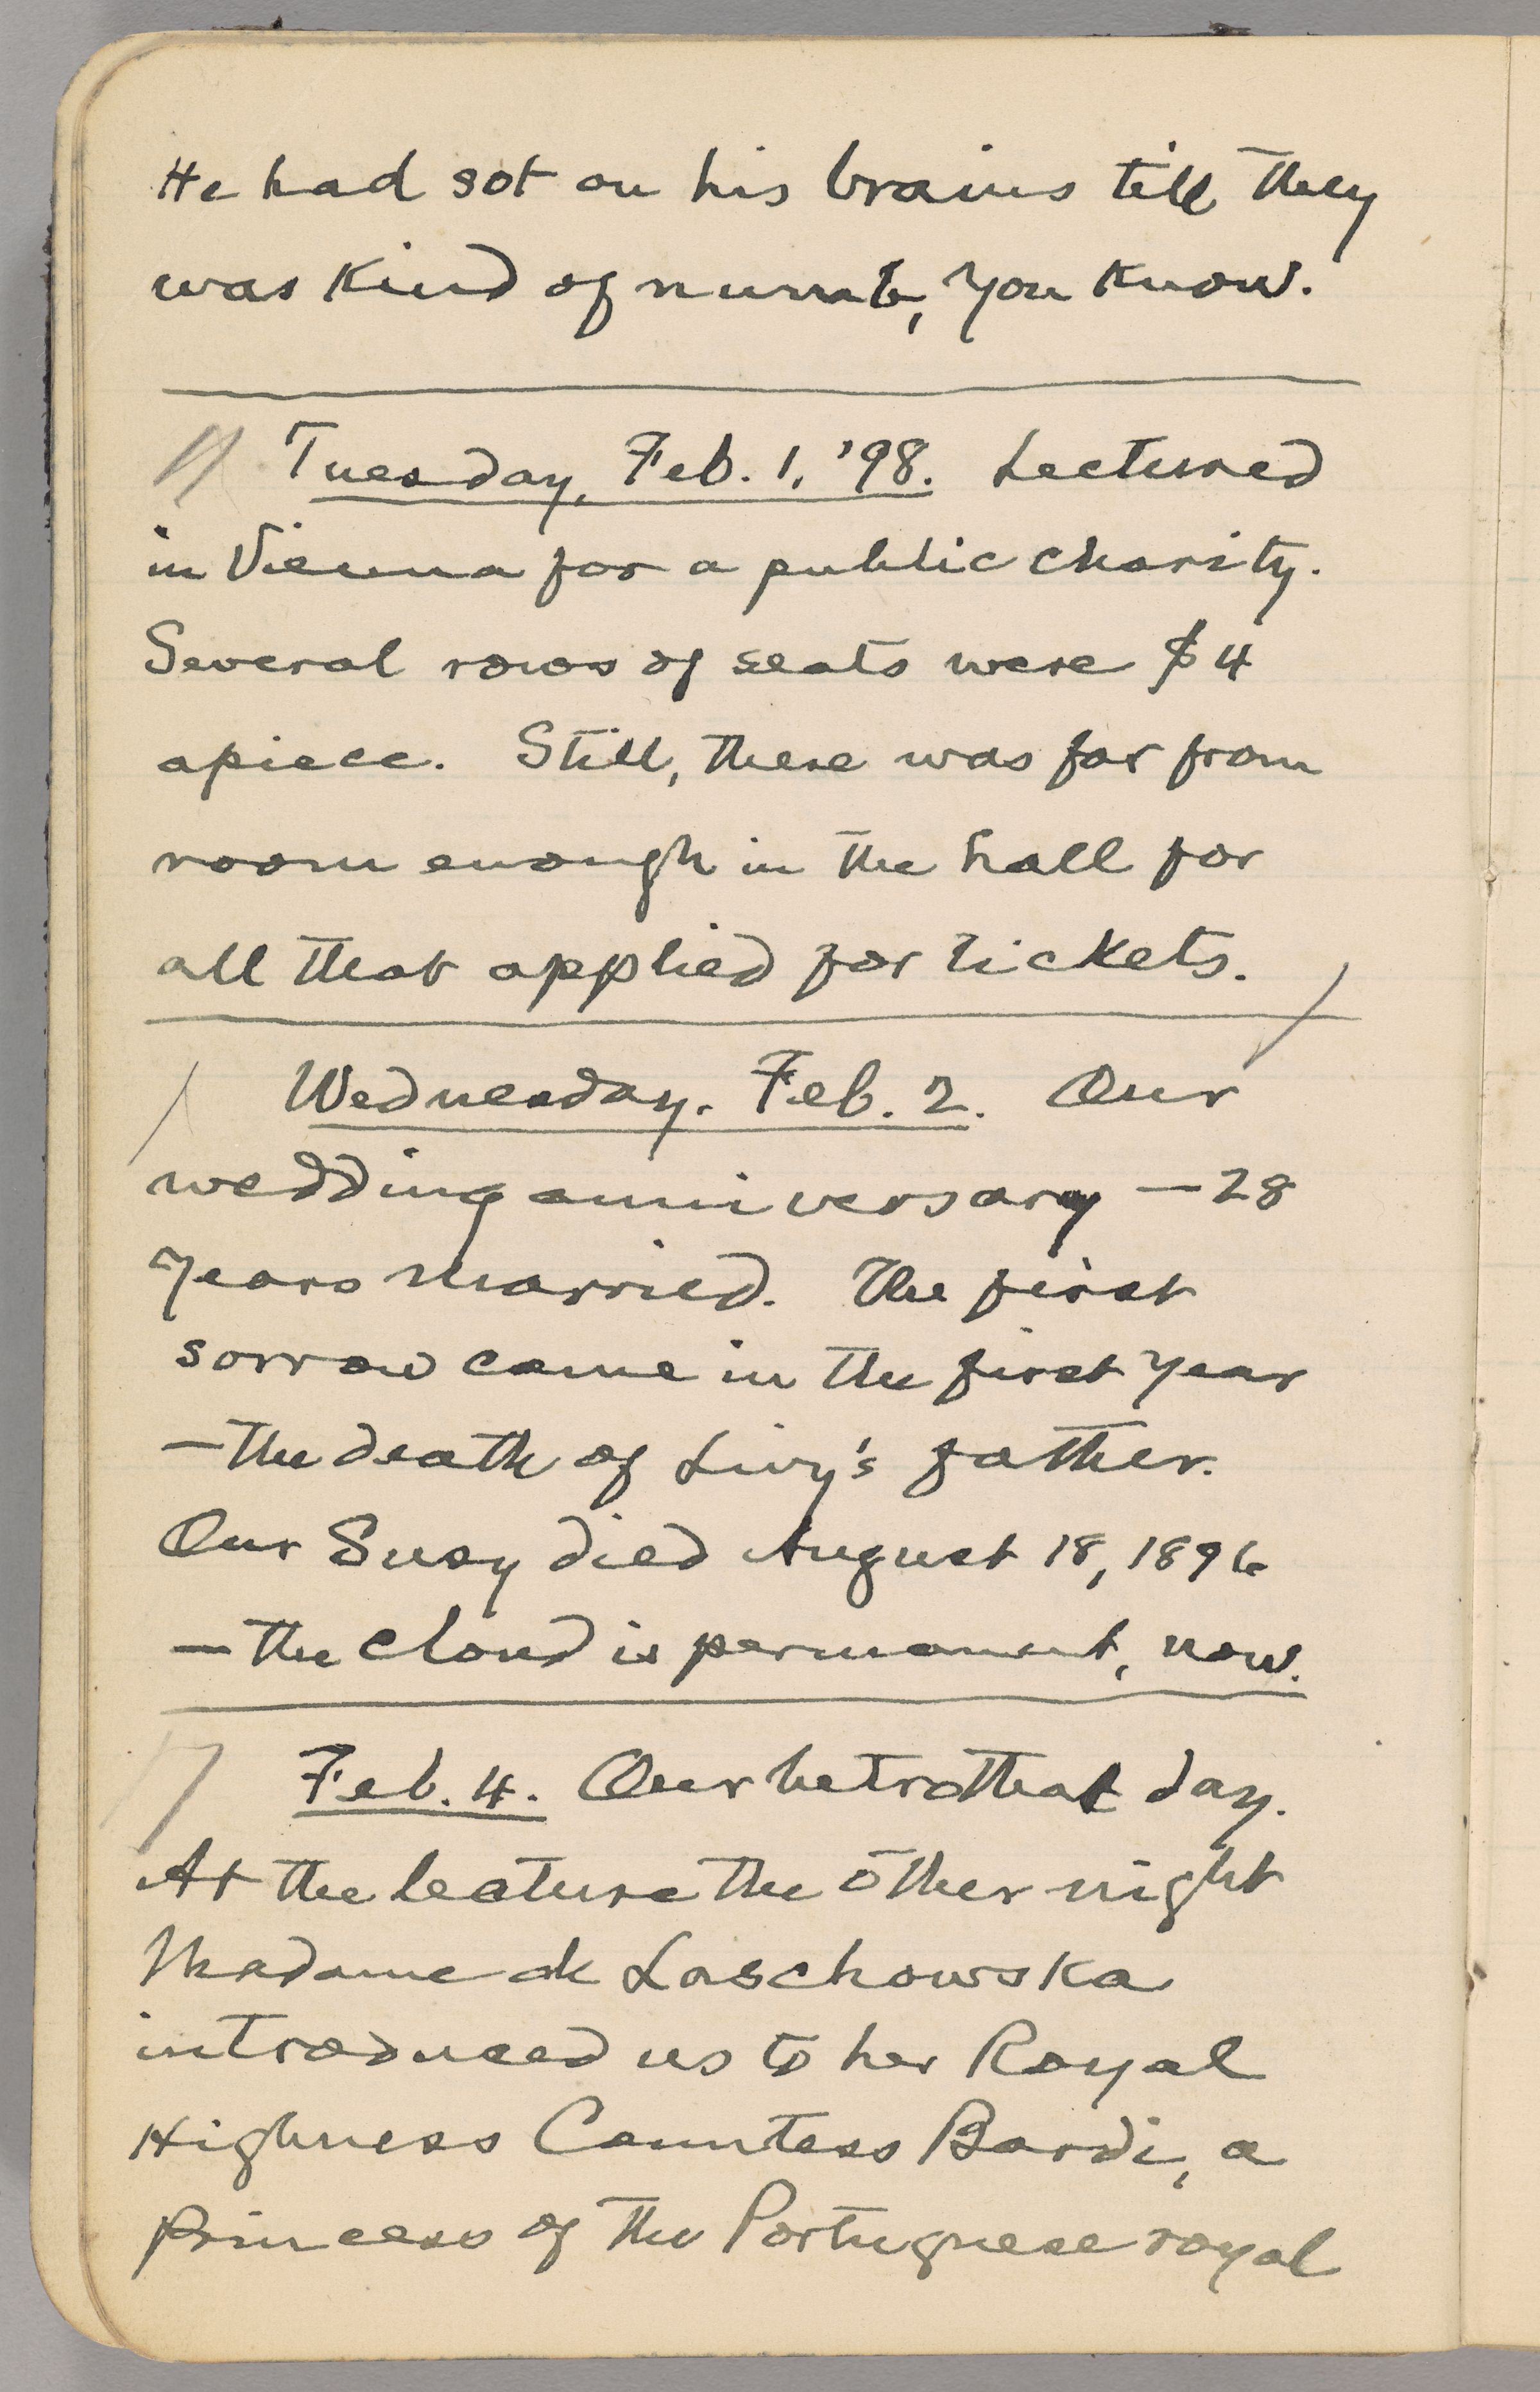 He had sot on his brains till they
was kind of numb, you know.
Tuesday, Feb. 1, '98. Lectured
in Vienna for a public charity.
Several rows of seats were $4
apiece. Still, there was far from
room enough in the hall for
all that applied for tickets.
Wednesday. Feb. 2. Our
wedding anniversary — 28
years married. The first
sorrow came in the first year
— the death of Livy's father.
Our Susy died August 18, 1896
— the cloud is permanent, now.
Feb. 4. Our betrothal day.
At the lecture the other night
Madame de Laschowska
introduced us to her Royal
Highness Countess Bardi, a
princess of the Portuguese royal